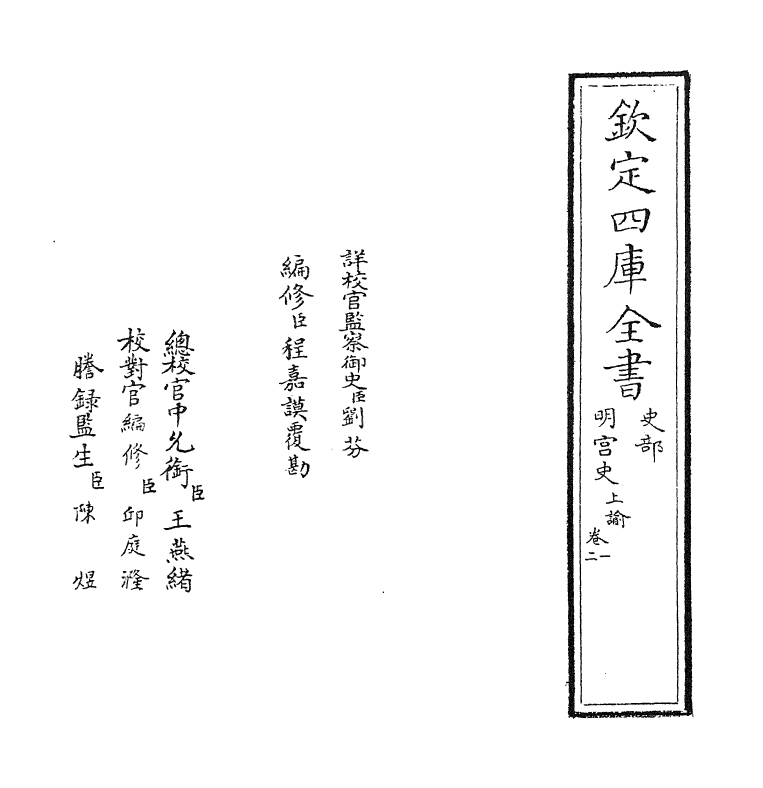 欽定四庫全書
史部
明宫史上諭
卷一
二
詳校官監察御史臣劉芬
編修臣程嘉謨覆勘
總校官中允銜臣王燕緒
校對官編修臣邱庭漋
謄録監生臣陳煜